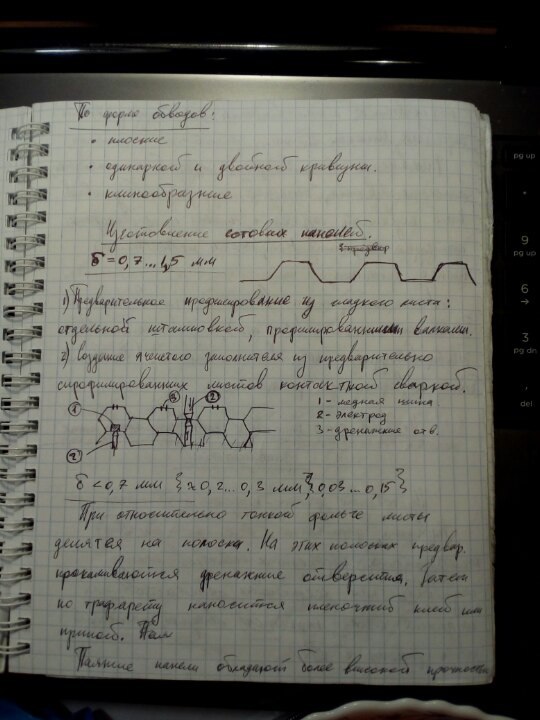 По форме обводов:
• плоские
• одинарной и двойной кривизны.
• клинообразные
Изготовление сотовых панелей.
δ = 0,7...1,5 мм
1) Предварительное профилирование из гладкого листа:
отдельной штамповкой, профилированными валками.
2) создание ячеистого заполнителя из предварительно
спрофилированных листов контактной сваркой.
1 - медная шина
2 - электрод
3 - дренажные отв.
1
3
2
2
δ < 0,7 мм {≈ 0,2...0,3 мм} {0,03 ... 0,15}
При относительно тонкой фольге листы
делятся на полоски. На этих полосках предвар.
прокалываются дренажные отверстия. Затем
по трафарету наносится пленочный клей или
припой. Пая
Паяные панели обладают более высокой прочностью
pg up
9
pg up
6
→
3
pg dn
.
del